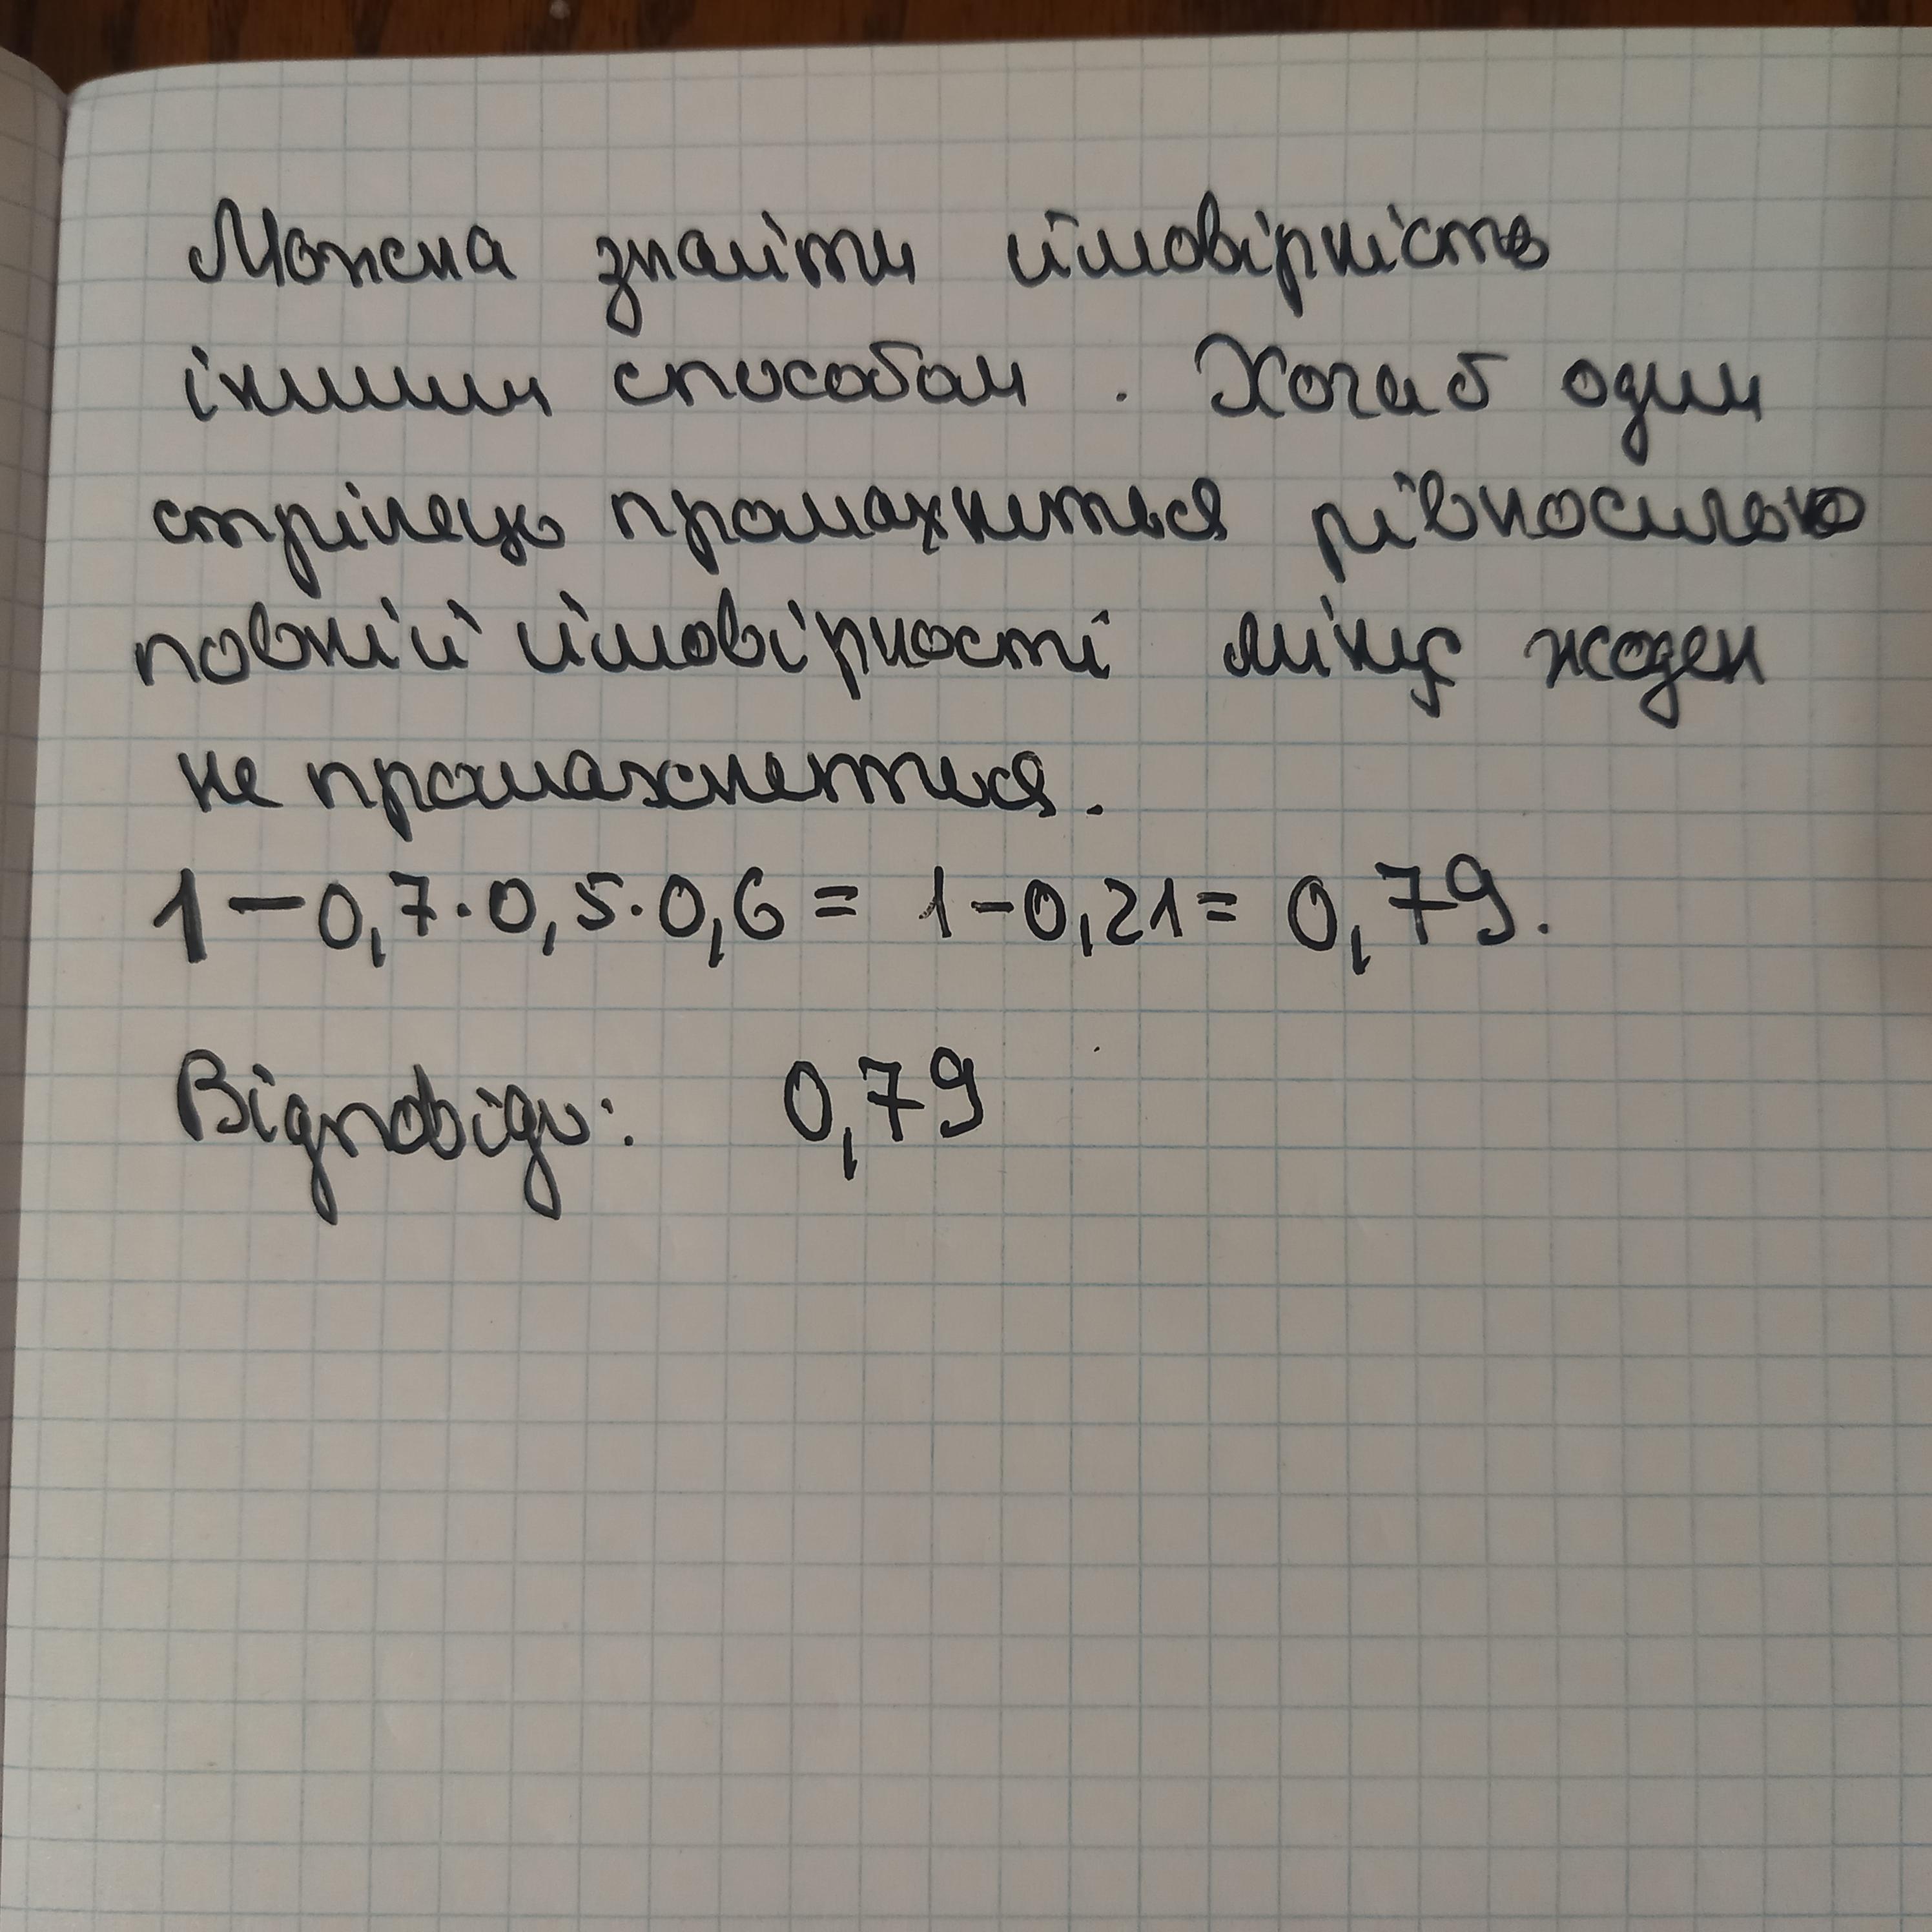 Можна знайти ймовірність
іншим способом. Хоча б один
стрілець промахнеться рівносильно
повній ймовірності мінус жоден
не промахнеться.
1 - 0,7 · 0,5 · 0,6 = 1 - 0,21 = 0,79.
Відповідь: 0,79